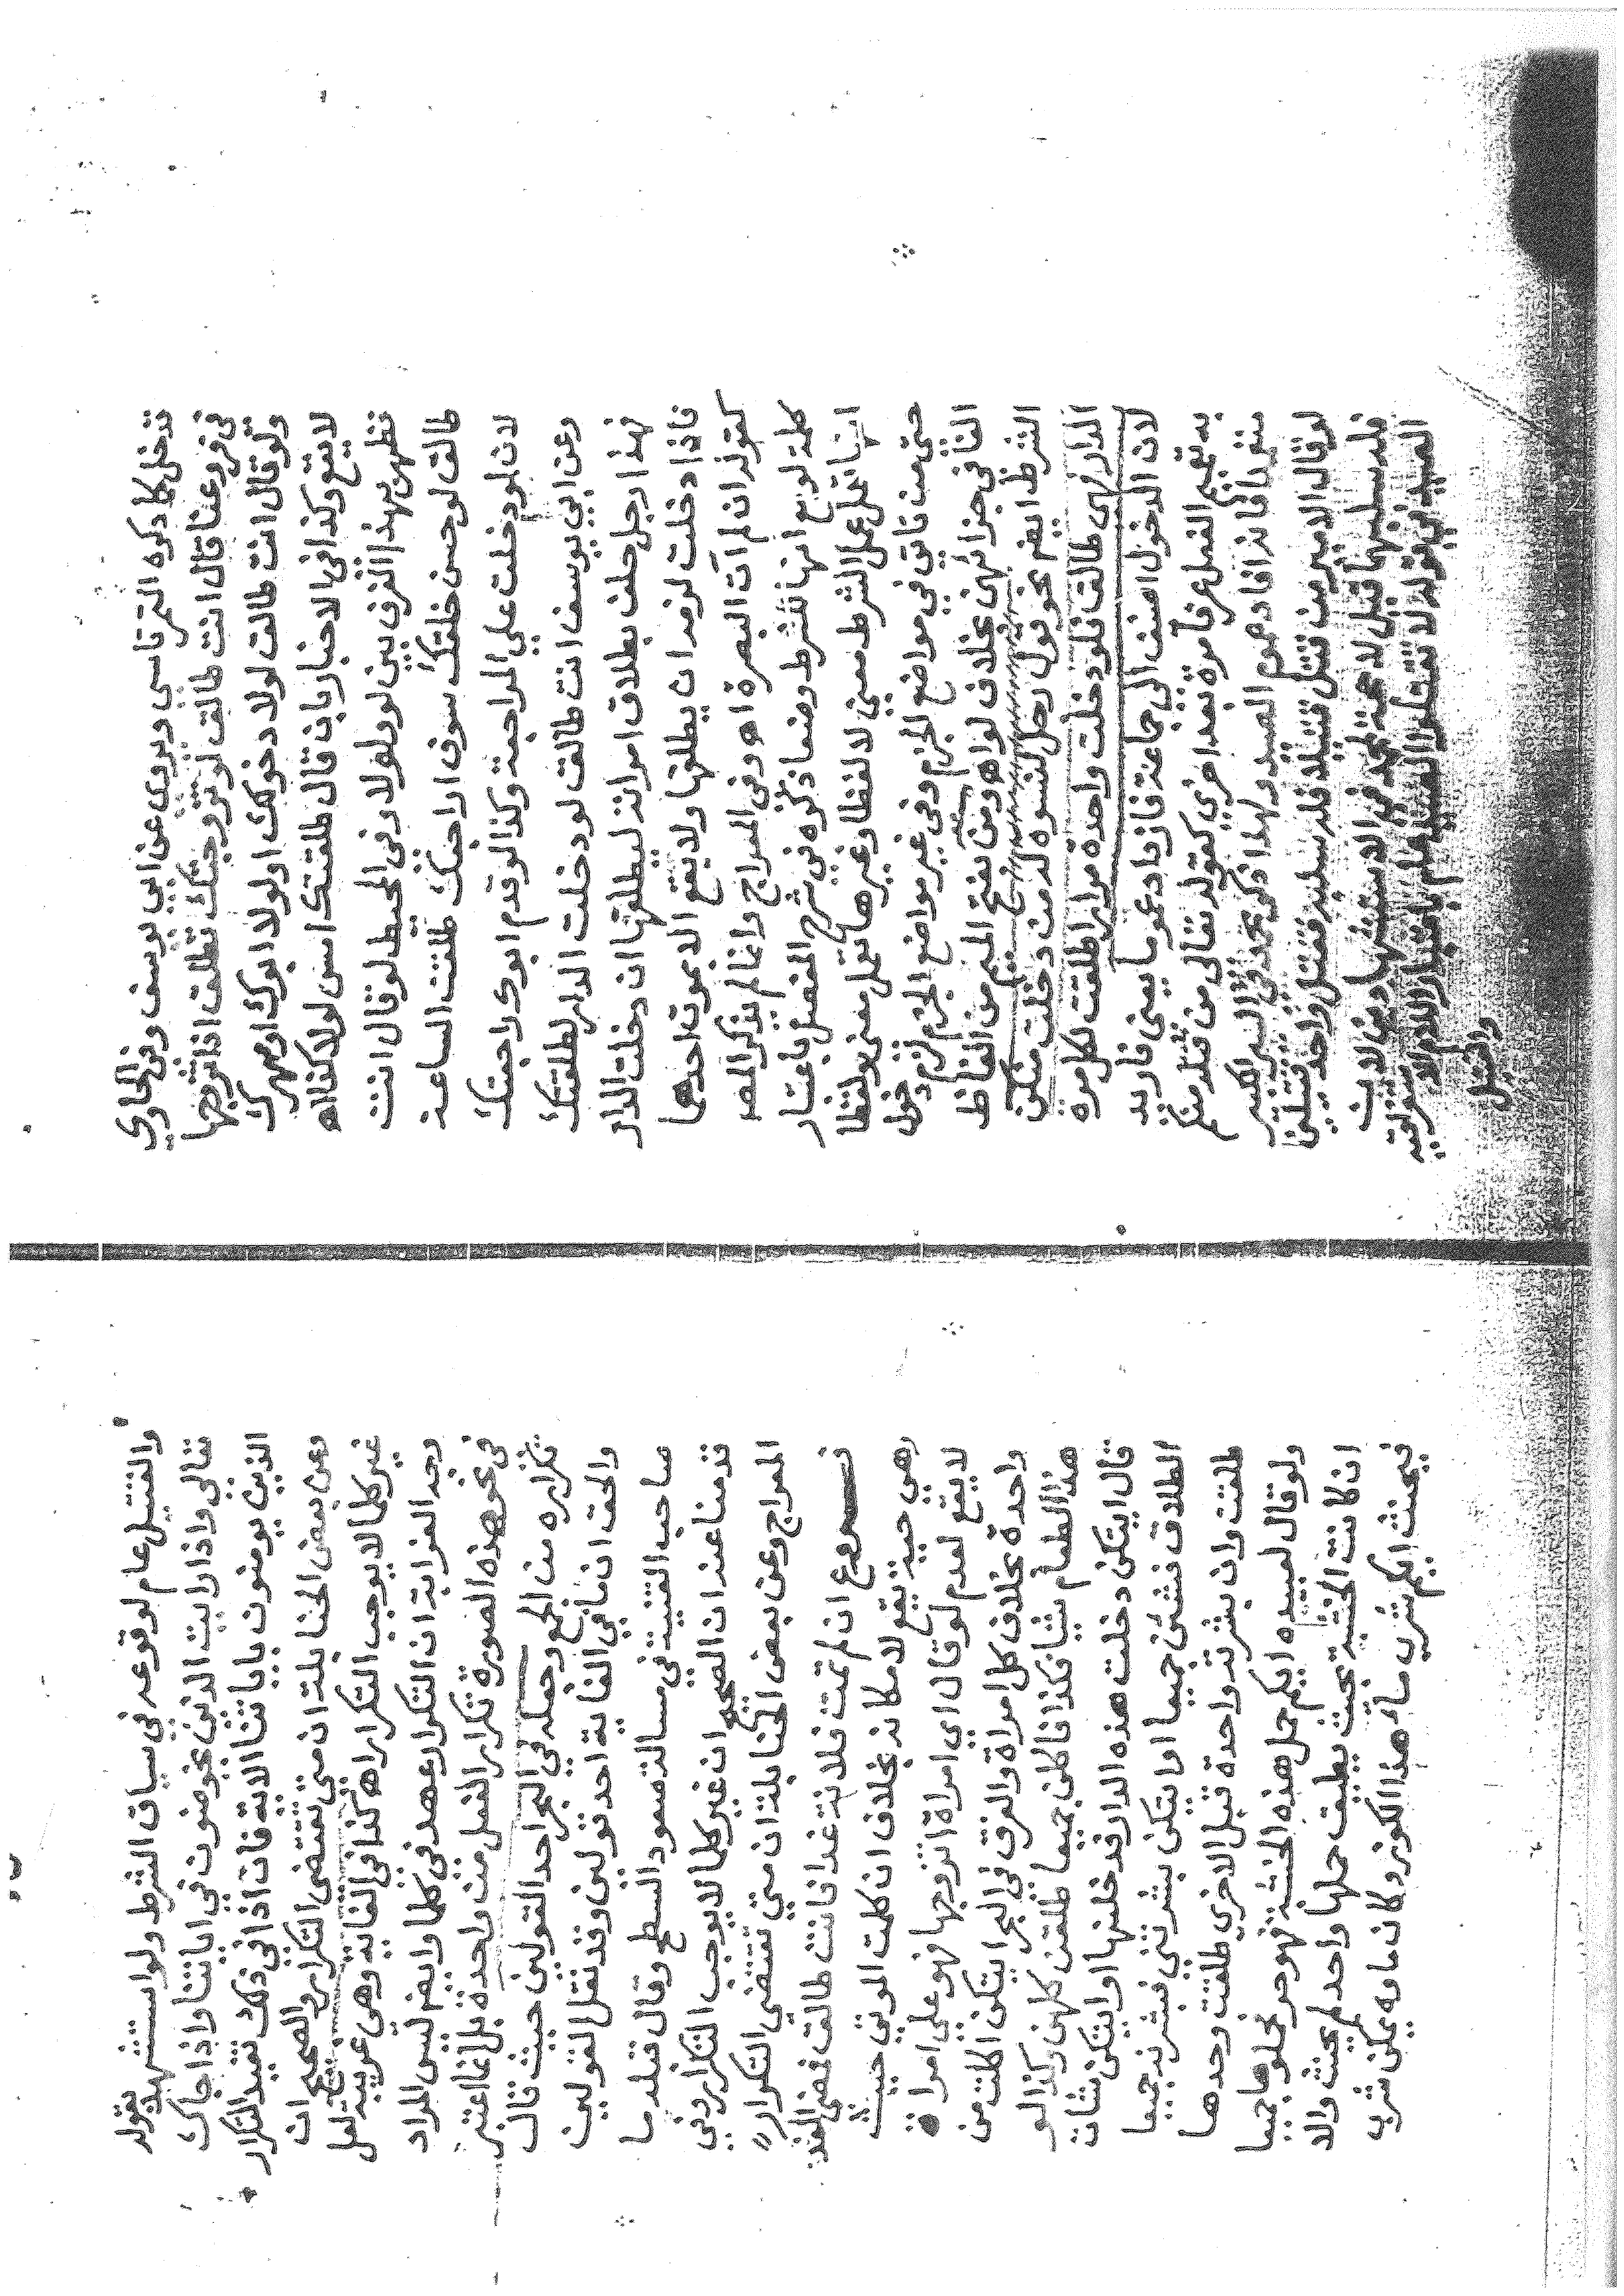 تدخل كما ذكره التمرتاسى ويروى عن ابى يوسف وفى الحاوى
فى فروعنا قال انت طالق لو تزوجتك تطلق اذا تزوجها
ولو قال انت طالق لولا دخولك او لولا ابوك او مهرك
لا يقع وكذا فى الاخبار بان قال طلقتك امس لولا كذا اه
فظهر بهذا الفرق بين لو ولولا وفى المحيط لو قال انت
طالق لو حسن خلقك سوف اراجعك طلقت الساعة
لان لو دخلت على المراجعة وكذا لو قدم ابوك راجعتك
وعن ابى يوسف انت طالق لو دخلت الدار لطلقتك
فهذا رجل حلف بطلاق امراته ليطلقنها ان دخلت الدار
فاذا دخلت لزمه ان يطلقها ولا يقع الا بموت احدهما
كقوله ان لم آت البصرة اه وفى المعراج وانما لم يذكر المصـ
كلمة لو مع انها للشرط وضعا ذكره فى شرح المفصل باعتبار
انها تعمل عمل الشرط معنى لا لفظا وغيرها يعمل معنى ولفظا
حتى من تاتى فى مواضع الجزم وفى غير مواضع الجزم لزم دخول
الفا فى جزائهن بخلاف لو اه ومن بفتح الميم من الفاظ
الشرط ايضم نحو قول رجل لنسوه له من دخلت منكن
الدار فهى طالق فلو دخلت واحدة مرارا طلقت لكل مرة
لان الدخول اضيف الى جماعة فازداد عموما يعنى فاريد
به تعميم الفعل عرفا مرة بعد اخرى كقوله تعالى من قتله منكم
متعمدا فانه افاد عموم الصيد ولهذا ذكر محمد فى السير الكبير
لو قال الامير من قتل قتيلا فله سلبه فقتل واحد قتيلين
فله سلبهما
والقتيل
والقتيل عام لوقوعه فى سياق الشرط ولو استشهد بقوله
تعالى واذا رايت الذين يخوضون فى اياتنا واذا جاك
الذين يومنون باياتنا الايه فان اذا فى ذلك تفيد التكرار
وعن بعض الحنابلة ان متى تقتضى التكرار والصحيح ان
غير كلما لا يوجب التكرار اه كذا فى الغاية وهى غريبة لعل
وجه الغرابة ان التكرار عهد فى كلما وايضم ليس المراد
فى نحو هذه الصورة تكرار الفعل من واحدة بل انما اعتبر
تكراره من الجمع وحمله فى البحر احد القولين حيث قال
والحق ان ما فى الغاية احد قولين وقد نقل القولين
صاحب القنية فى مسالة صعود السطح وقال قبله ما
قدمنا عنه ان الصحيح ان غير كلما لا يوجب التكرار وفى
المعراج وعن بعض الحنابلة ان متى تقتضى التكرار
فـــروع ان لم تمت فلانة غدا فانت طالق فمضى الغد
وهى حية يقع لا مكانه بخلاف ان كلمت الموتى حيث
لا يقع لعدم لو قال اى امراة اتزوجها فهو على امراة
واحدة بخلاف كل امراة والفرق فى البحر ايتكن اكلت من
هذا الطعام شيا فكذا فاكلن جميعا طلقن كلهن وكذا لو
قال ايتكن دخلت هذه الدار فدخلنها او ايتكن شات
الطلاق فشئن جميعا او ايتكن بشرتنى فبشرنه جميعا
طلقت وان بشرته واحدة قبل الاخرى طلقت وحدها
ولو قال لعبيده ايكم حمل هذه الخشبة فهو حر فحملوها جميعا
ان كانت الخشبة بحيث يطيق حملها واحد لم يحنث والا
فيحنث ايكم شرب ماء هذا الكوز وكان ماوه يمكن شرب